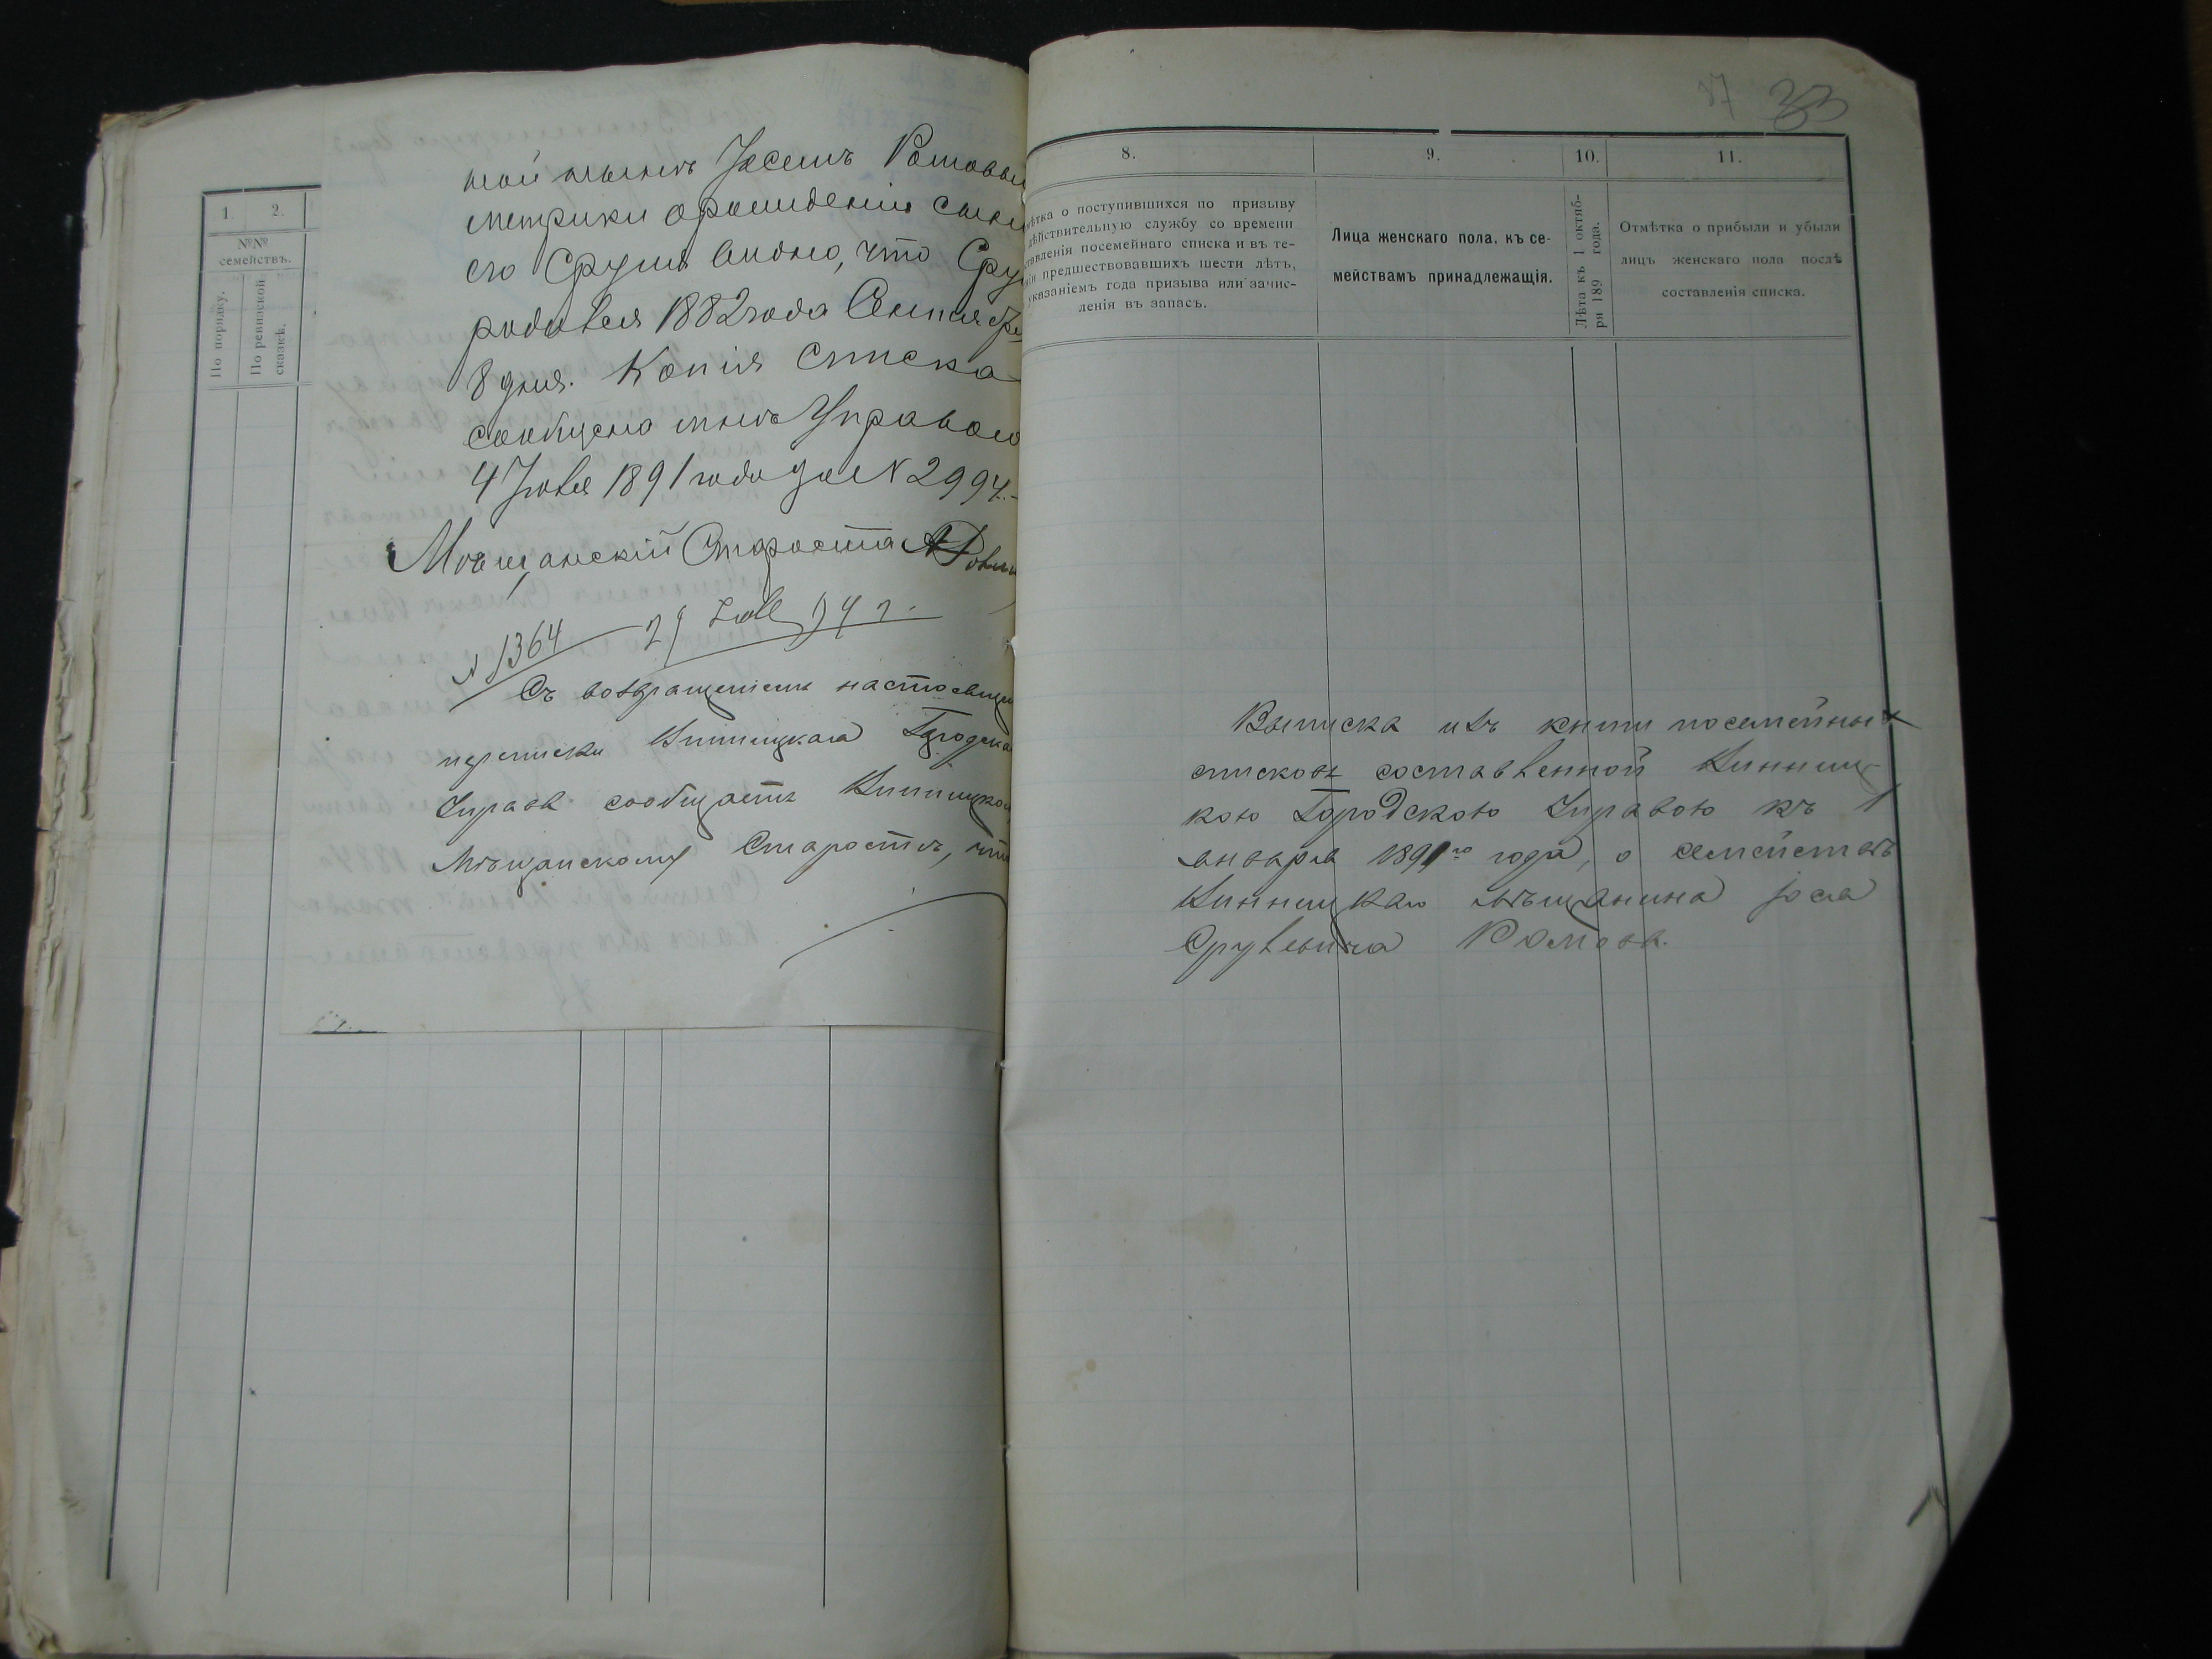 1. 2.
№№
семействъ.
По порядку.
По ревизской
сказкѣ.
метрики о рожденіи сына
его Сруля видно, что Сру
родился 1882 года Сентября
8 дня. Копія списка
сообщено мнѣ Управою
4 Іюля 1891 года за N 2994.
Мѣщанскій Староста
N 1364
Съ возвращеніемъ настоящей
переписки Винницкая Городска
Управа сообщаетъ Винницко
Мѣщанскому Старостѣ, что
87 33
8. 9. 10. 11.
ѣтка о поступившихся по призыву
ѣйствительную службу со времени
тавленія посемейнаго списка и въ те-
ніи предшествовавшихъ шести лѣтъ,
указаніемъ года призыва или зачис-
ленія въ запасъ.
Лица женскаго пола, къ се-
мействамъ принадлежащія.
Лѣта къ 1 октяб-
ря 189 года.
Отмѣтка о прибыли и убыли
лицъ женскаго пола послѣ
составленія списка.
Выписка изъ книги посемейных
списковъ составленной Винниц-
кою Городскою Управою къ 1
января 1891го года, о семействѣ
Винницкаго мѣщанина Іося
Срулевича